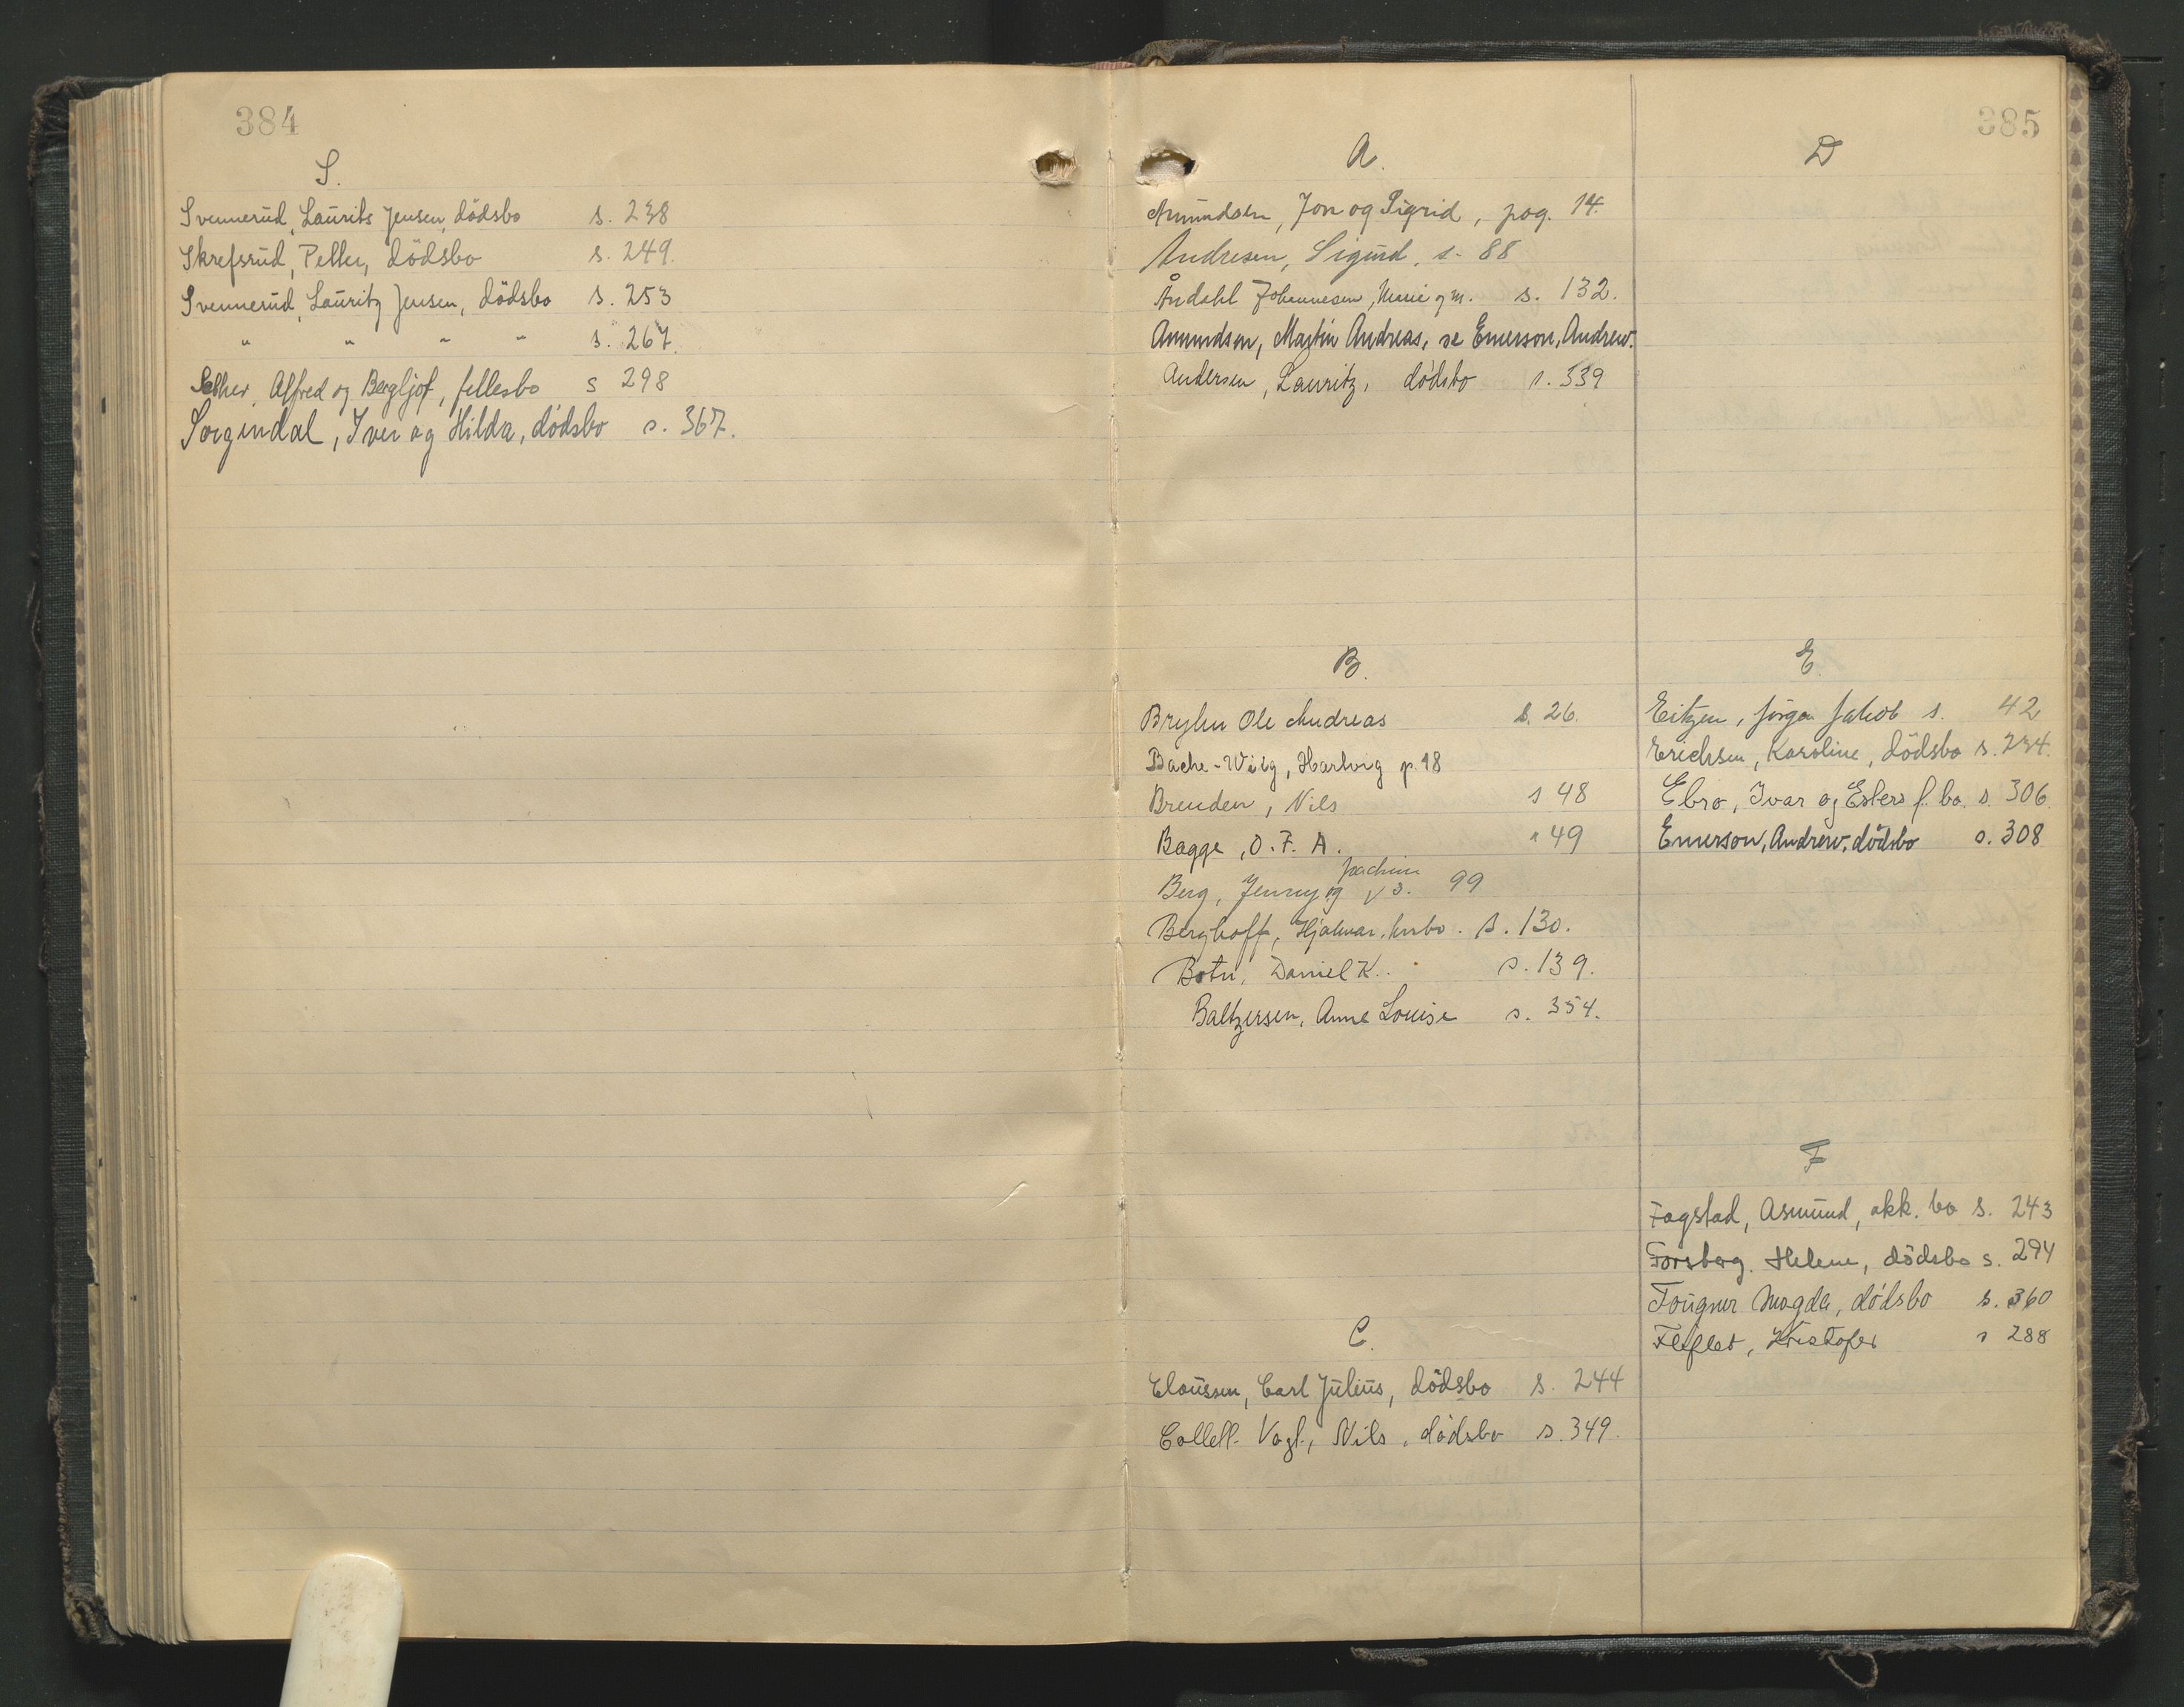 384
S.
Svennerud, Laurits Jensen, dödsbo s. 238
Skrefsrud, Petter, dödsbo s. 249.
Svennerud, Lauritz Jensen, dödsbo s. 253
" " " " s. 267.
Sæther, Alfred og Bergljot, fellesbo s 298
Sorgendal, Iver og Hilda, dödsbo s. 367.
385
A.
Amundsen, Jon og Sigrid, pag. 14.
Andresen, Sigurd, s. 88
Åndahl Johannesen, Marie g.m. s. 132.
Amundsen, Martin Andreas, se Emerson, Andrew.
Andersen, Lauritz, dödsbo s. 339
B.
Bryhn Ole Andreas s. 26.
Bache-Wiig, Hartvig p. 18
Brenden, Nils s 48
Bagge, O. F. A. " 49
Joachim
Berg, Jenny og s. 99
Berghoff, Hjalmar, s. 130.
Botn, Daniel K. s. 139.
Baltzersen, Anne Louise s. 354.
C.
Claussen, Carl Julius, dödsbo s. 244
Collett-Vogt, Nils, dödsbo s. 349.
D
E.
Eitzen, Jörgen Jakob s. 42
Erichsen, Karoline, dödsbo s. 234.
Ebro, Ivar og Esters f. bo. s. 306.
Emerson, Andrew, dödsbo s. 308
F
Fagstad, Asmund, akk. bo s. 243
Forsberg, Helene, dödsbo s. 294
Fougner Magda, dödsbo s. 360
Fleflet, Kristofer s 288